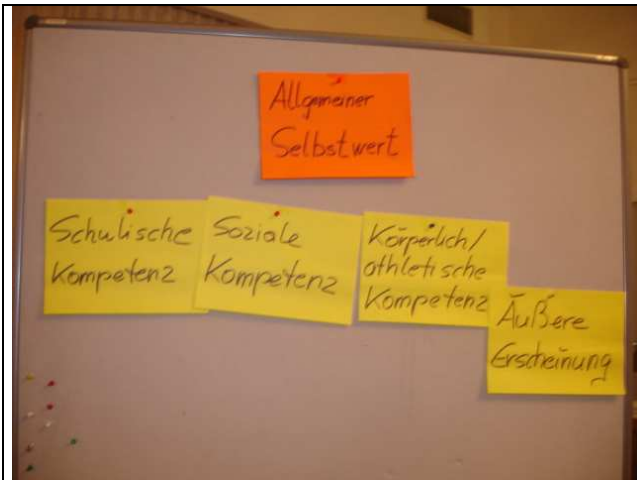 Allgemeiner
Selbstwert
Schulische
Kompetenz
Soziale
Kompetenz
Körperlich/
athletische
Kompetenz
Äußere
Erscheinung